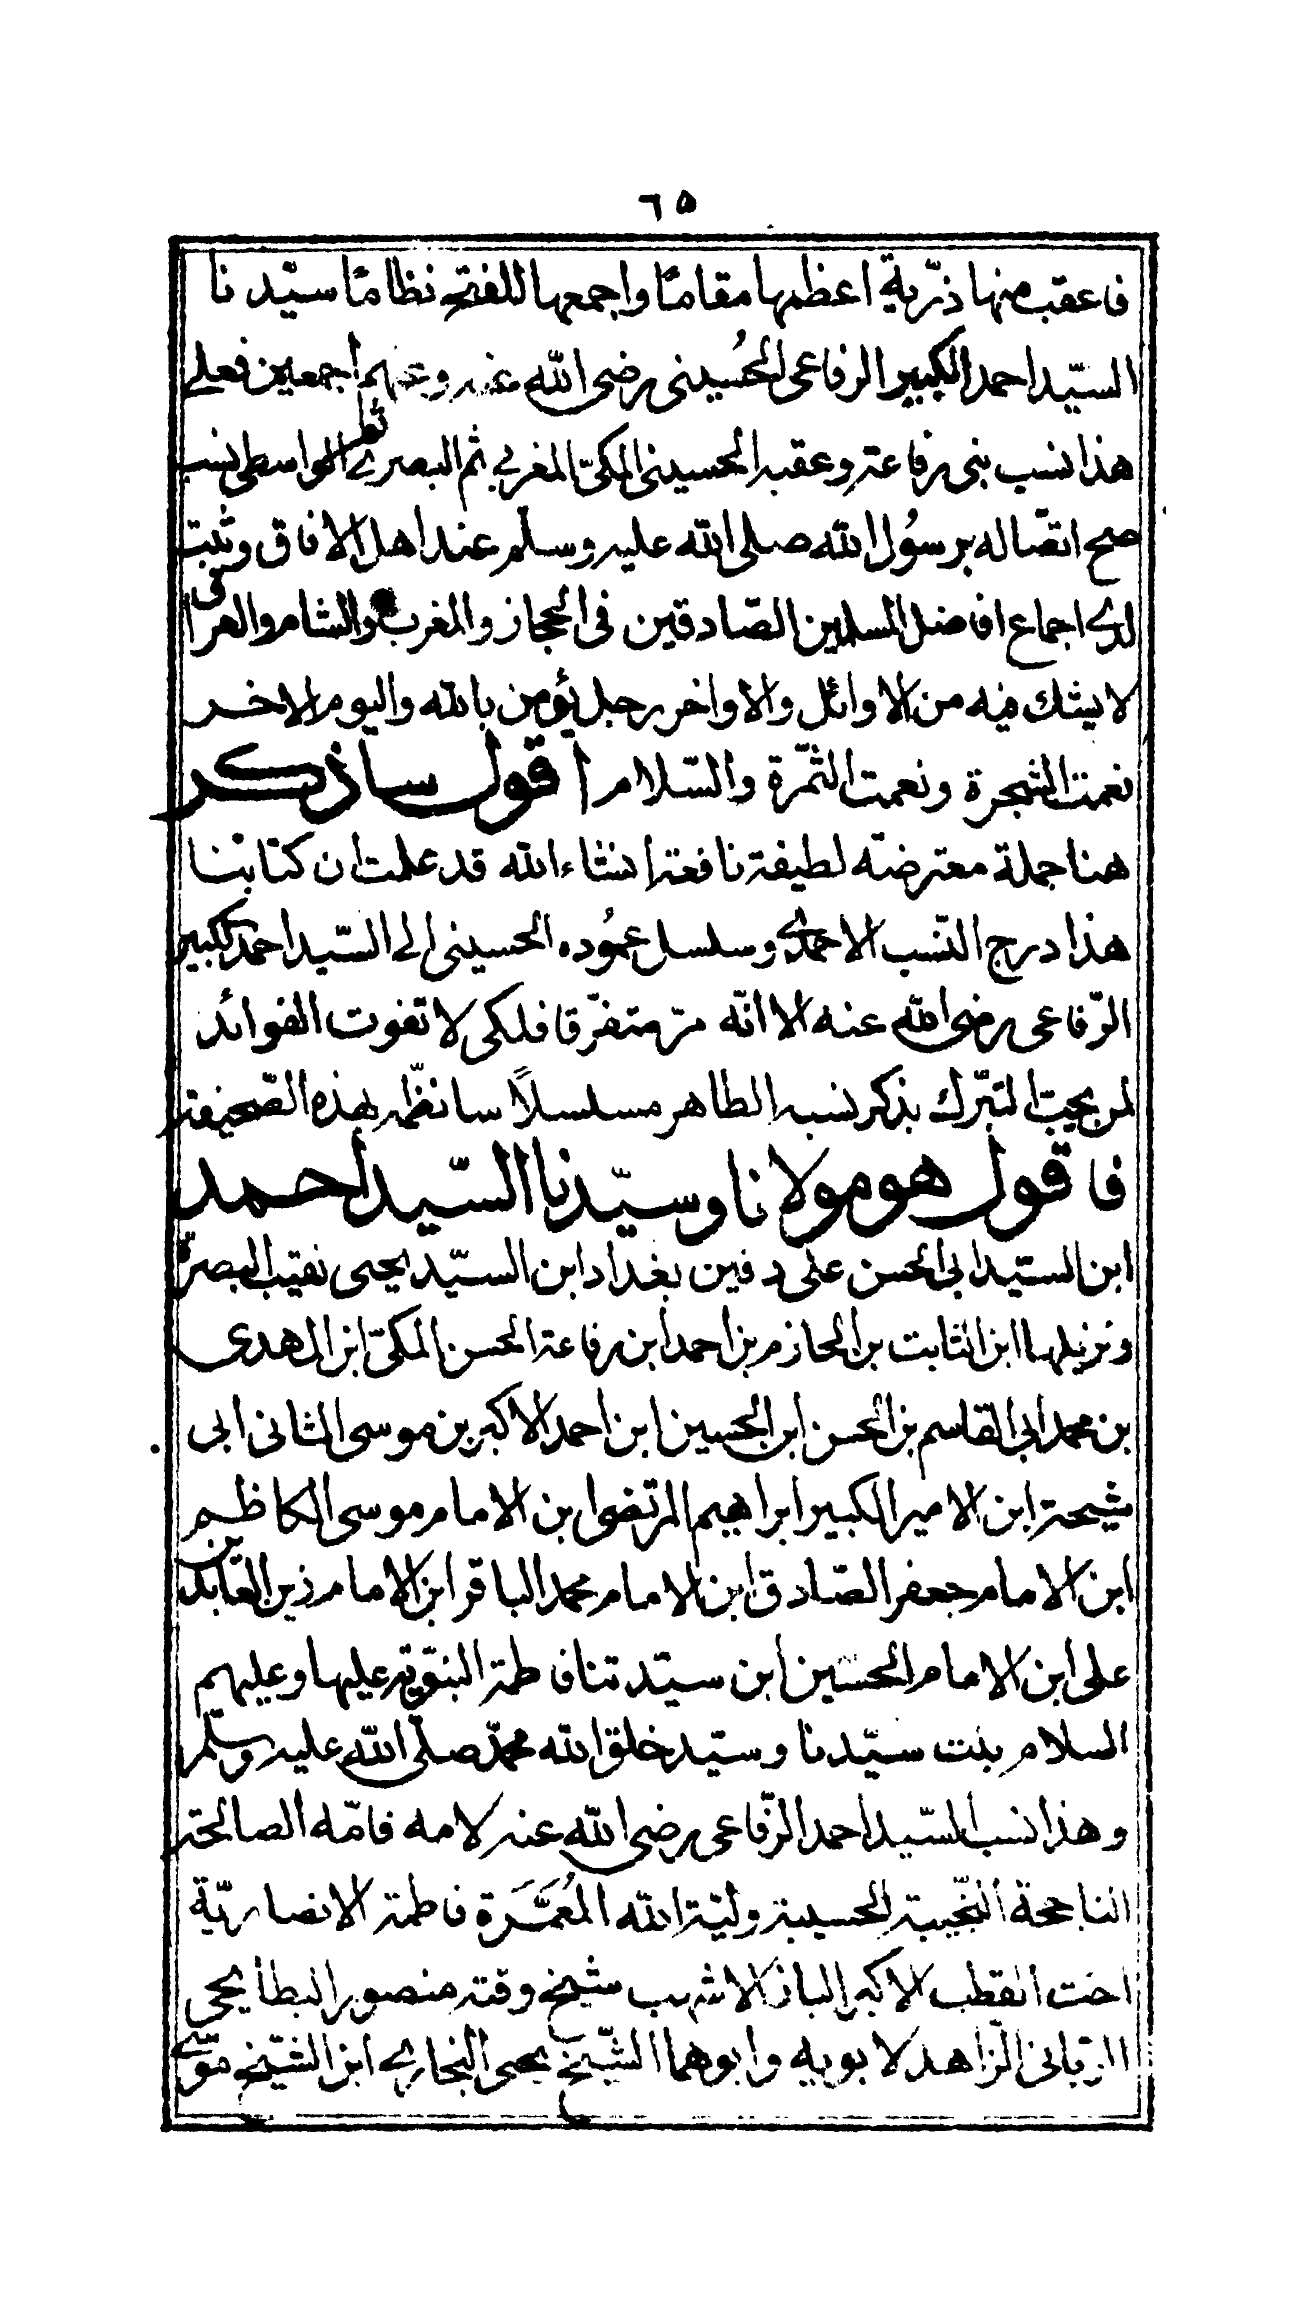 ٦٥
فاعقب منها ذرّية اعظمها مقامًا واجمعها للفتح نظامًا سيّدنا
السيّد احمد الكبير الرفاعى الحُسينى رضى الله عنه وعنهم اجمعين فعلى
هذا نسب بنى رفاعة وعقبه الحسينى المكىّ المغربي ثم البصرے ثم الواسطى نسب
صح اتصّاله برسُول الله صلى الله عليه وسلم عند اهل الافاق وثبت
لدے اجماع افاضل المسلمين الصّادقين فى الحجاز والمغرب والشام والعراق
لا يشك فيه من الاوائل والاواخر رجل يؤمن بالله واليوم الاخر
نعمت الشجرة ونعمت الثمّرة والسّلام اقول ساذكر
هنا جملة معترضته لطيفة نافعة انشاء الله قد علمت ان كتابنا
هذا درج النسّب الاحمدے وسلسل عمُوده الحسينى الى السّيد احمد الكبير
الرّفاعى رضى الله عنه الا انّه مرّ متفرّقا فلكى لا تفوت الفوائد
لمن يحبّ التبّرك بذكر نسبه الطاهر مسلسلاً سانظّمه بهذه الصّحيفة
فاقول هو مولانا وسيّدنا السّيد احمد
ابن السيّد ابى الحسن على دفين بغداد ابن السيّد يحيى نقيب البصرة
ونزيلها ابن الثابت بن الحازم بن احمد ابن رفاعة الحسن المكىّ ابن المهدى
بن محمد ابى القاسم بن الحسن ابن الحسين ابن احمد الاكبر بن موسى الثانى ابى
مشيحة ابن الامير الكبير ابراهيم المرتضى ابن الامام موسى الكاظم
ابن الامام جعفر الصّادق ابن الامام محمد الباقر ابن الامام زين العابدين
على ابن الامام الحسين ابن سيّدتنا فاطمة النبّوية عليها وعليهم
السلام بنت سيّدنا وسيّد خلق الله محمّد صلّى الله عليه وسلّم
وهذا نسب السّيد احمد الرّفاعى رضى الله عنه لامه فامّه الصالحة
الناجحة النجّيبة الحسيبة وليّة الله المُعمَّرَة فاطمة الانصاريّة
اخت القطب الاكبر الباز الاشهب شيخ وقته منصور البطايحى
الربّانى الزّاهد لابويه وابوهما الشّيخ يحيى النجارے ابن الشّيخ موسى